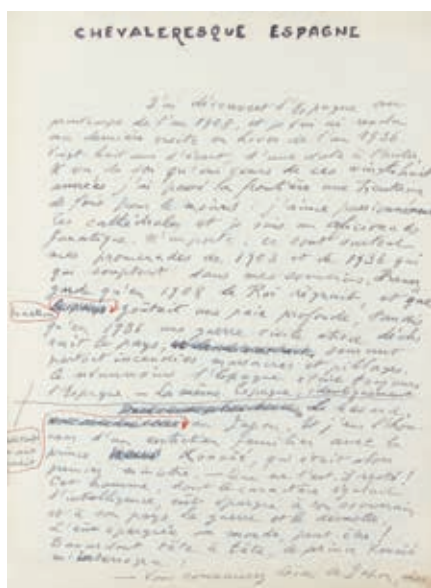 CHEVALERESQUE ESPAGNE
J'ai découvert l'Espagne au
printemps de l'an 1908, et je lui ai rendu
ma dernière visite en hiver de l'an 1936
vingt huit ans d'écart, d'une date à l'autre
de ces vingt huit
années j'ai passé la frontière une trentaine
de fois pour le moins. J'aime passionnément
les cathédrales et je suis un aficionado
fanatique. N'importe, ce sont surtout
mes promenades de 1908 et de 1936 qui
qui comptent dans mes souvenirs.
qu'en 1908 le Roi régnait, et que
goûtait une paix profonde, tandis
qu'en 1936 une guerre civile atroce déchi
rait le pays,
partout incendies, massacres et pillages.
l'Espagne était toujours
l'Espagne – la même Espagne
Le hasard
au Japon. Et j'eus l'hon
neur d'un entretien familier avec le
prince Konoé, qui était alors
premier ministre –
Cet homme, dont le caractère égalait
l'intelligence, eût épargné à son souverain
et à son pays la guerre et la défaite
L'eût épargnée au monde peut être!
tête à tête, le prince Konoé
m'interrogea:
– Vous connaissez